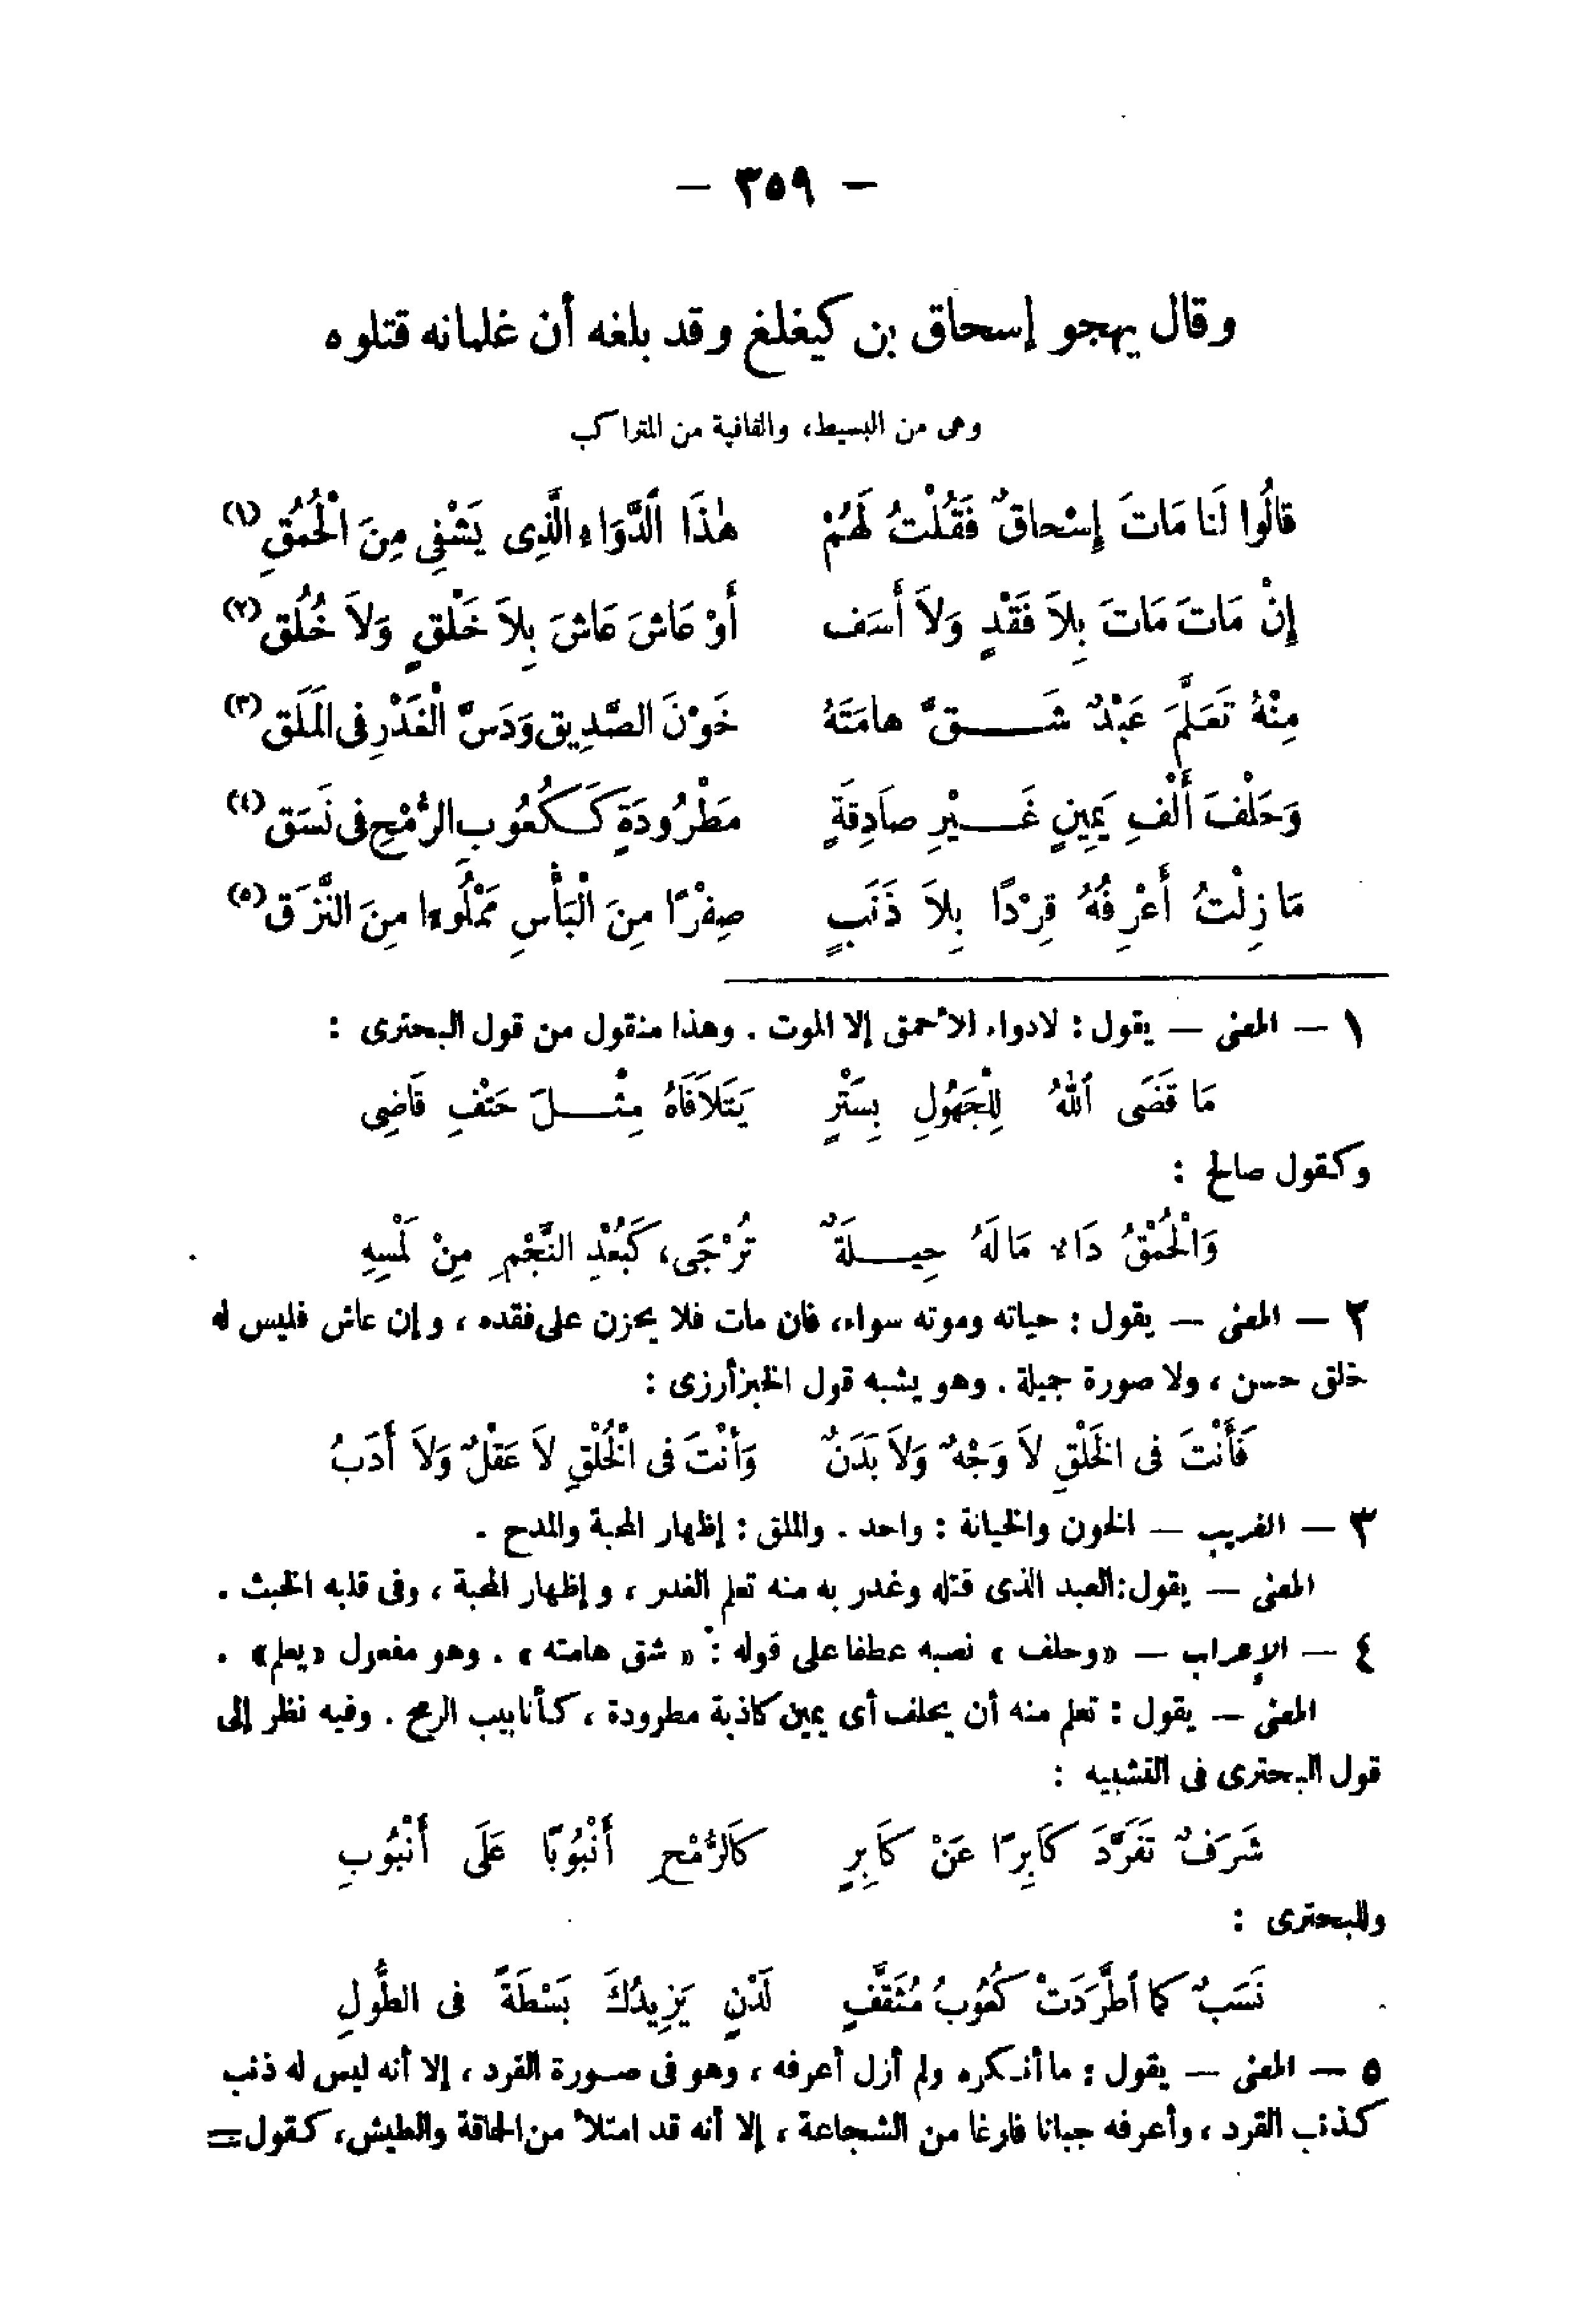 — ٣٥٩ —
وقال يهجو إسحاق بن كيغلغ وقد بلغه أن غلمانه قتلوه
وهى من البسيط، والقافية من المتراكب
قالُوا لَنا مَاتَ إِسْحاقٌ فَقُلْتُ لَهُمْ هٰذَا اَلدَّوَاءِ الَّذِى يَشْفِى مِنَ الْحُمُقِ (١)
إِنْ مَاتَ مَاتَ بِلاَ فَقْدٍ وَلاَ أَسَف أَوْ عَاشَ عَاشَ بِلاَ خَلْقٍ وَلاَ خُلُق (٢)
مِنْهُ تَعَلَّمَ عَبْدٌ شَقَّ هامَتَهُ خَوْنَ الصَّدِيق وَدَسَّ الْغَدْرِ فى المَلَق (٣)
وَحَلْفَ أَلْفِ يَمِينٍ غَيْرِ صَادِقَةٍ مَطْرُودَةٍ كَكُعُوبِ الرُّمْحِ فى نَسَق (٤)
مَا زِلْتُ أَعْرِفُهُ قِرْدًا بِلاَ ذَنَبٍ صِفْرًا مِنَ الْبَأْسِ مَمْلُوءا مِنَ النَّزَق (٥)
١ — المعنى — يقول : لادواء الأحمق إلا الموت . وهذا منقول من قول البحترى :
مَا قَضَى اَللهُ لِلْجَهُولِ بِسَتْرٍ يَتَلاَفَاهُ مِثْلَ حَتْفِ قَاضِى
وكقول صالح :
وَالْحُمْقُ دَاء مَا لَهُ حِيلَةٌ تُرْجَى، كَبُعْدِ النَّجْمِ مِنْ لَمْسِهِ
٢ — المعنى — يقول : حياته وموته سواء، فان مات فلا يحزن على فقده ، وإن عاش فليس له
خلق حسن ، ولا صورة جميلة . وهو يشبه قول الخبزأرزى :
فَأَنْتَ فى الخَلْقِ لاَ وَجْهٌ وَلاَ بَدَنٌ وَأَنْتَ فى الْخُلْقِ لاَ عَقْلٌ وَلاَ أَدَبُ
٣ — الغريب — الخون والخيانة : واحد . والملق : إظهار المحبة والمدح .
المعنى — يقول : العبد الذى قتله وغدر به منه تعلم الغدر ، وإظهار المحبة ، وفى قلبه الخبث .
٤ — الإعراب — «وحلف» نصبه عطفا على قوله : «شق هامته» . وهو مفعول «يعلم» .
المعنى — يقول : تعلم منه أن يحلف أى يمين كاذبة مطرودة ، كأنابيب الرمح . وفيه نظر إلى
قول البحترى فى التشبيه :
شَرَفٌ تَفَرَّدَ كَابِرًا عَنْ كَابِرٍ كَالرُّمْحِ أُنْبُوبًا عَلَى أُنْبُوبِ
وللبحترى :
نَسَبٌ كما اُطَّرَدَتْ كُعُوبُ مُثَقَّفٍ لَدْنٍ يَزِيدُكَ بَسْطَةً فى الطُّولِ
٥ — المعنى — يقول : ما أنكره ولم أزل أعرفه ، وهو فى صورة القرد ، إلا أنه ليس له ذنب
كذنب القرد ، وأعرفه جبانا فارغا من الشجاعة ، إلا أنه قد امتلأ من الحماقة والطيش ، كقول =